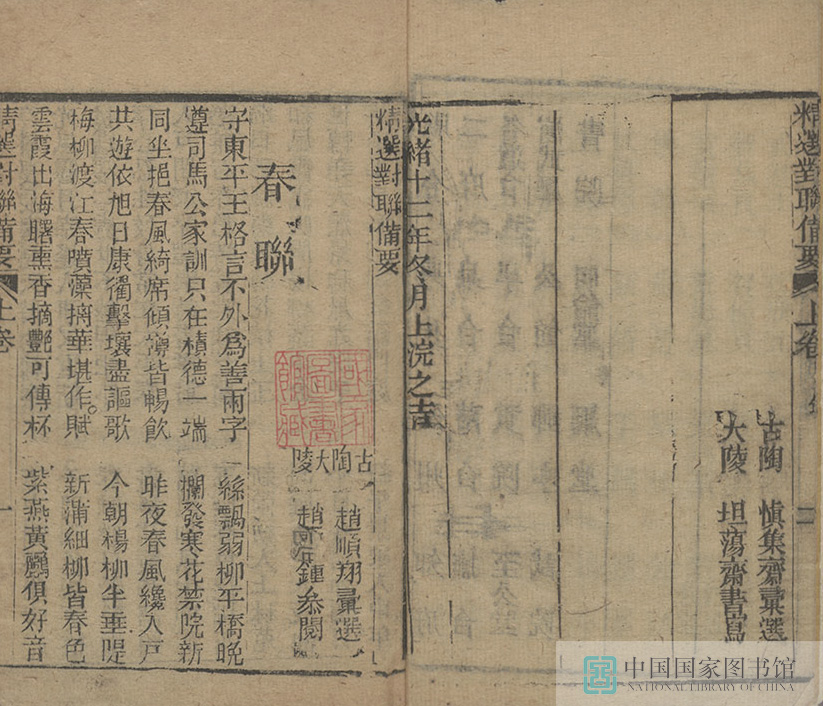 精選對聯備要
上卷
二
古陶 慎集齋彙選
大陵 坦蕩齋書寫
光緒十二年冬月上浣之吉
精選對聯備要
古陶 趙順翔彙選
大陵 鍾叅閱
國家圖書館藏
春聯
守東平王格言不外為善兩字 絲飄弱柳平橋晚
遵司馬公家訓只在積德一端 欄發寒花禁院新
同坐挹春風綺席傾樽皆暢飲 昨夜春風纔入戶
共遊依旭日康衢擊壤盡謳歌 今朝楊柳半垂隄
梅柳渡江春噴藻摛華堪作賦 新蒲細柳皆春色
雲霞出海曙熏香摘艷可傳杯 紫燕黃鸝俱好音
精選對聯備要
上卷
一
中国国家图书馆
NATIONAL LIBRARY OF CHINA